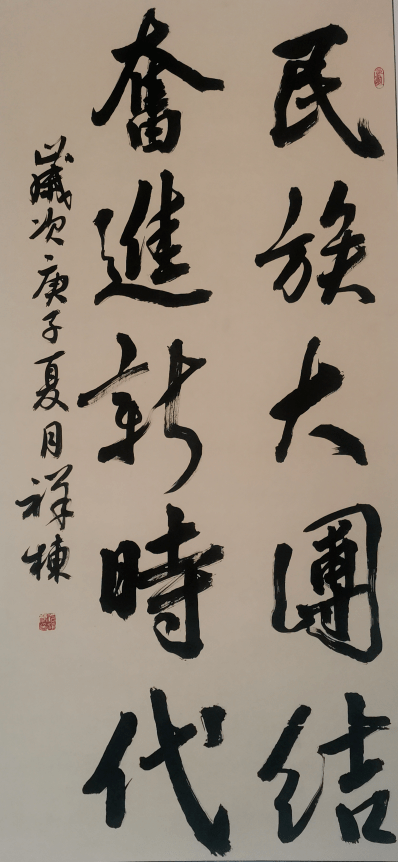 民族大團結
奮進新時代
歲次庚子夏月祥棟